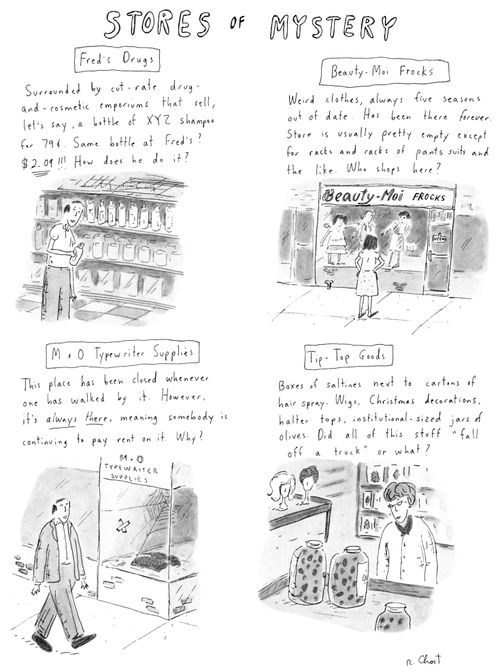 STORES OF MYSTERY
Fred's Drugs
Surrounded by cut-rate drug-
and-cosmetic emporiums that sell,
let's say, a bottle of XYZ shampoo
for 79¢. Same bottle at Fred's?
$2.09!!! How does he do it?
Beauty-Moi Frocks
Weird clothes, always five seasons
out of date. Has been there forever.
Store is usually pretty empty except
for racks and racks of pants suits and
the like. Who shops here?
Beauty-Moi FROCKS
M + O Typewriter Supplies
This place has been closed whenever
one has walked by it. However,
it's always there, meaning somebody is
continuing to pay rent on it. Why?
M + O
TYPEWRITER
SUPPLIES
Tip-Top Goods
Boxes of saltines next to cartons of
hair spray. Wigs, Christmas decorations,
halter tops, institutional-sized jars of
olives. Did all of this stuff "fall
off a truck" or what?
R. Chast